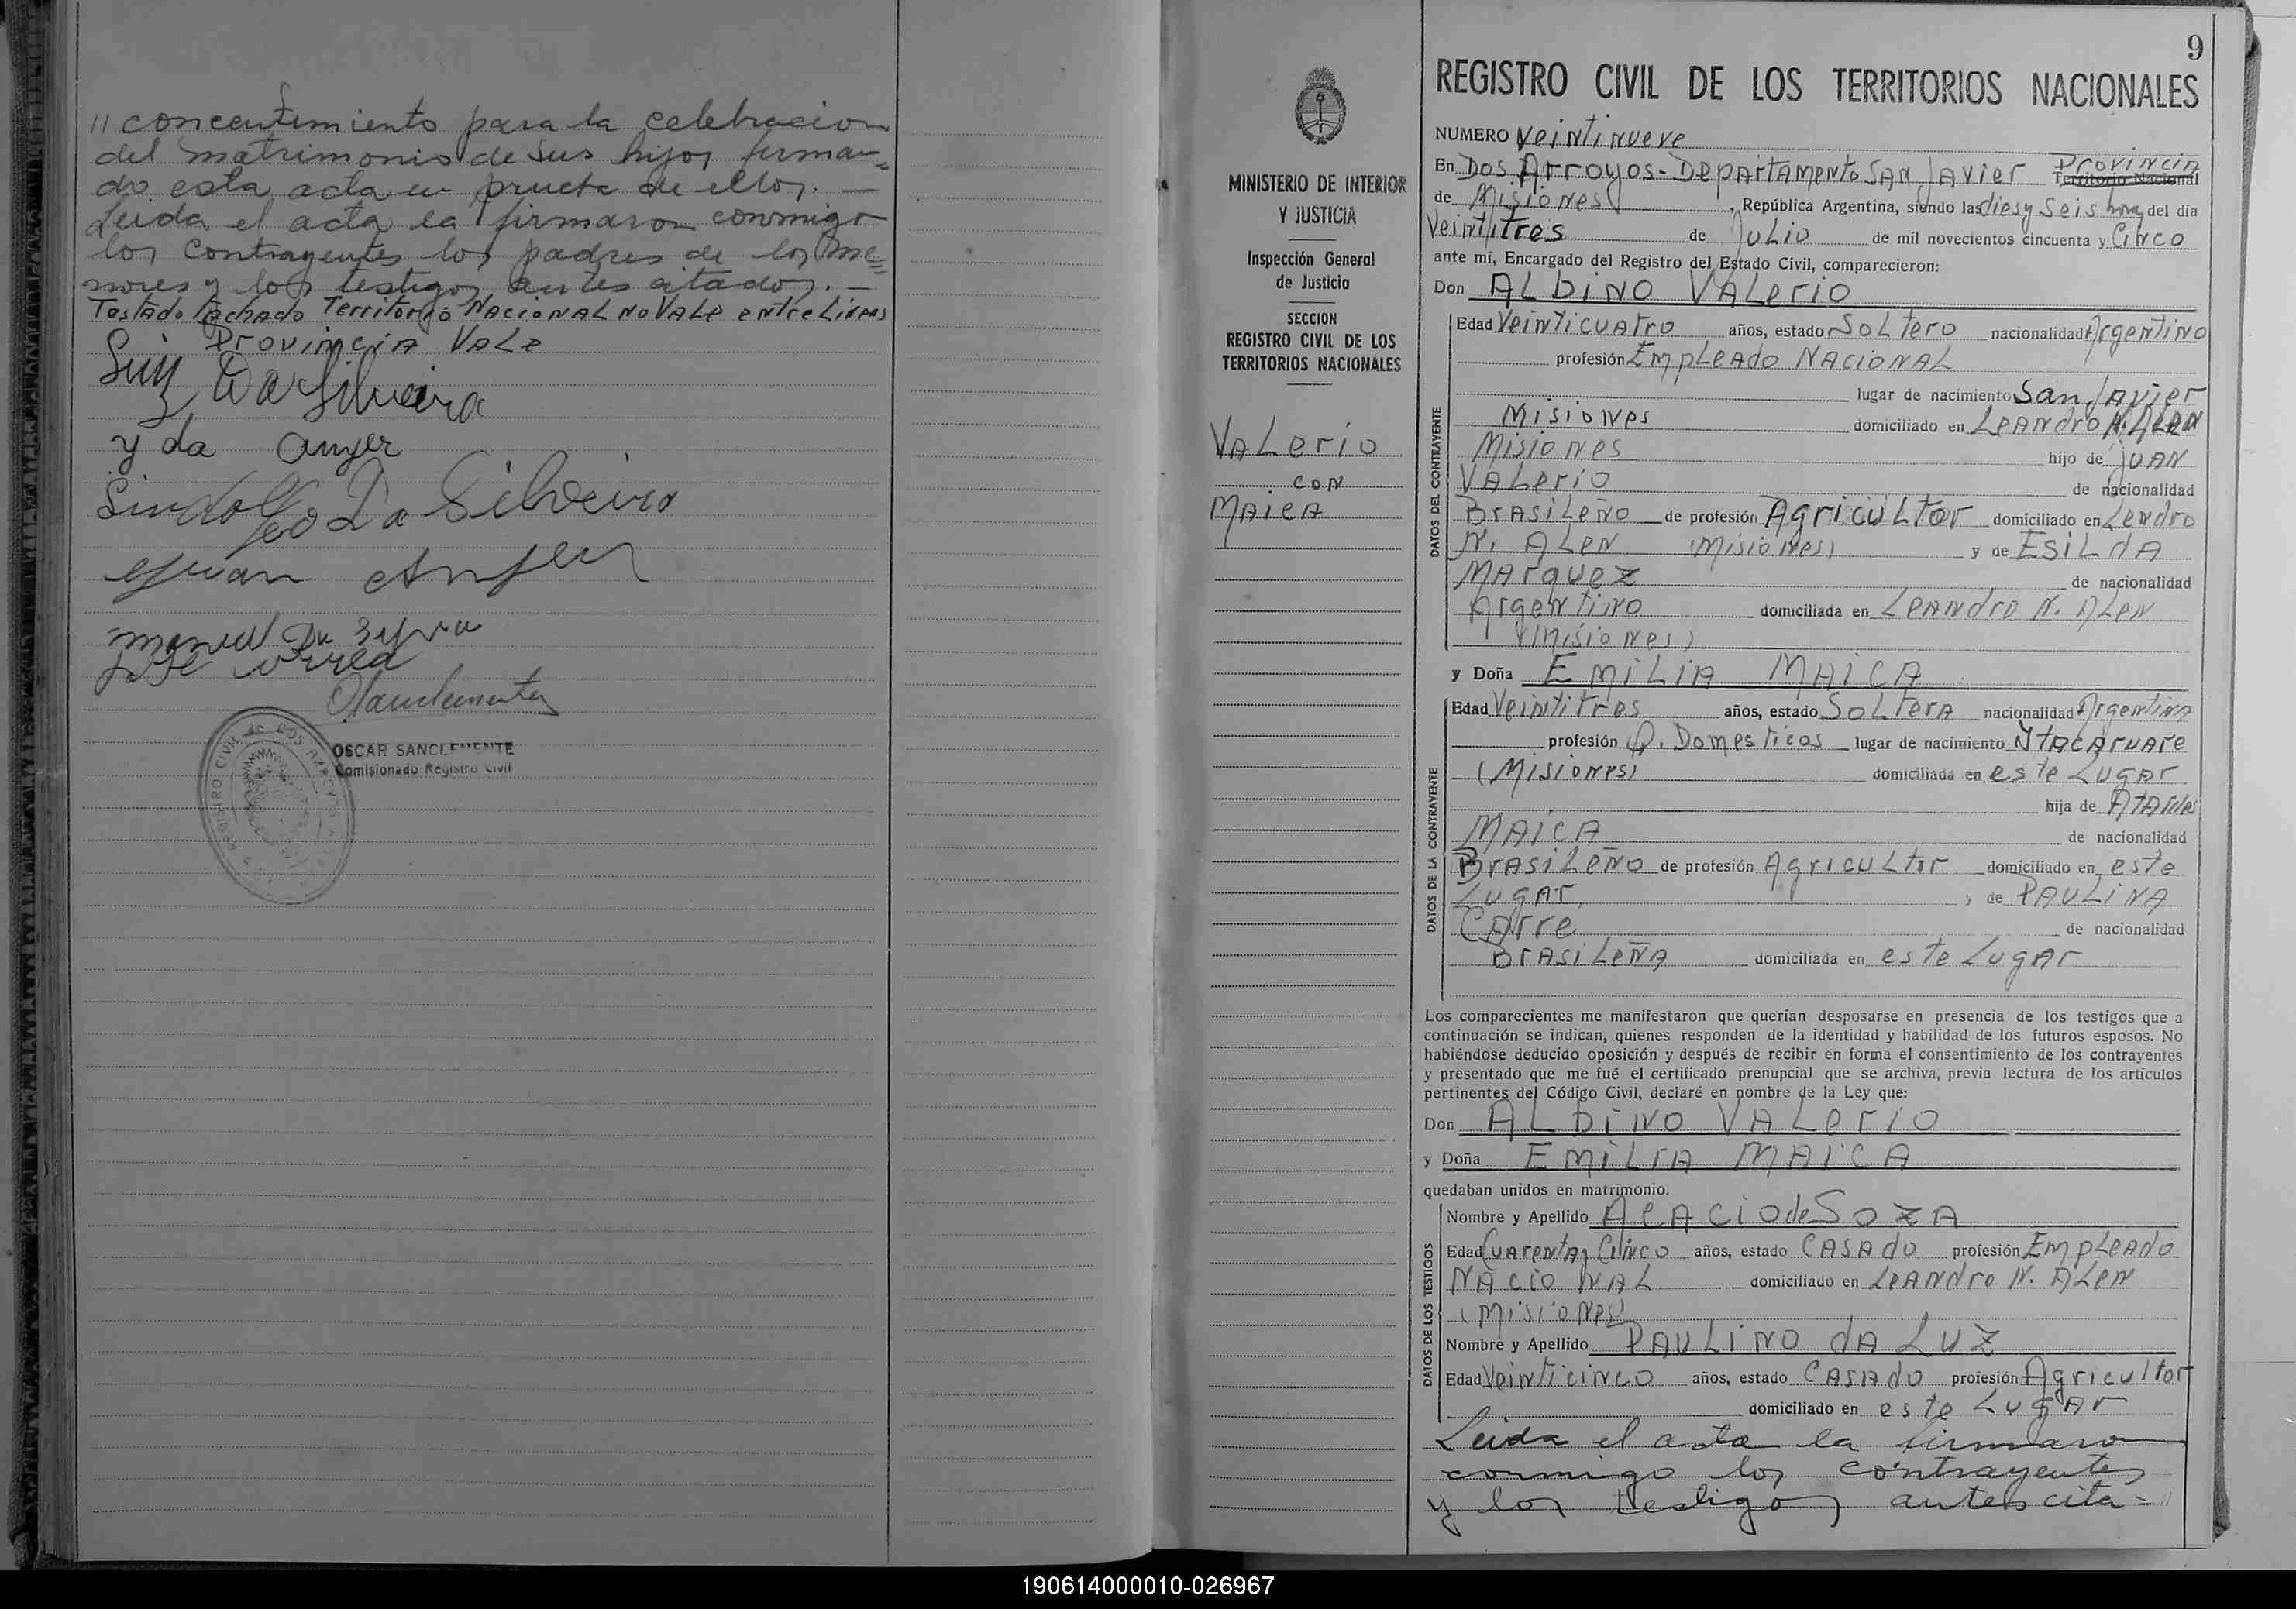 // concentimiento para la celebracion
del matrimonio de sus hijos firman=
do esta acta en prueba de ellos. —
Leida el acta la firmaron conmigo
los contrayentes los padres de los me=
nores y los testigos antes citados. —
Testado tachado Territorio Nacional no Vale entre Lineas
Provincia Vale
Luiz Da Silveira
y da anger
Sindolfo Da Silveira
Juan Anger
manuel Da
Jose Correa
OSCAR SANCLEMENTE
Comisionado Registro Civil
REGISTRO CIVIL DE DOS ARROYOS
9
MINISTERIO DE INTERIOR
Y JUSTICIA
Inspección General
de Justicia
SECCION
REGISTRO CIVIL DE LOS
TERRITORIOS NACIONALES
Valerio
con
Maica
REGISTRO CIVIL DE LOS TERRITORIOS NACIONALES
NUMERO Veintinueve
En Dos Arroyos - Departamento San Javier Provincia Territorio Nacional
de Misiones, República Argentina, siendo las diesy seis horas del día
Veintitres de Julio de mil novecientos cincuenta y Cinco
ante mí, Encargado del Registro del Estado Civil, comparecieron:
Don ALbino VALerio
DATOS DEL CONTRAYENTE
Edad Veinticuatro años, estado Soltero nacionalidad Argentino
profesión Empleado Nacional
lugar de nacimiento San Javier
Misiones domiciliado en Leandro N. Alen
Misiones hijo de Juan
Valerio de nacionalidad
Brasileño de profesión Agricultor domiciliado en Lendro
N. Alen (Misiones) y de Esilda
Marquez de nacionalidad
Argentino domiciliada en Leandro N. Alen
(Misiones)
y Doña Emilia Maica
DATOS DE LA CONTRAYENTE
Edad Veintitres años, estado Soltera nacionalidad Argentina
profesión Q. Domesticos lugar de nacimiento Ytacaruare
(Misiones) domiciliada en este Lugar
hija de
Maica de nacionalidad
Brasileño de profesión Agricultor domiciliado en este
Lugar, y de Paulina
Carre de nacionalidad
Brasileña domiciliada en este Lugar
Los comparecientes me manifestaron que querían desposarse en presencia de los testigos que a
continuación se indican, quienes responden de la identidad y habilidad de los futuros esposos. No
habiéndose deducido oposición y después de recibir en forma el consentimiento de los contrayentes
y presentado que me fué el certificado prenupcial que se archiva, previa lectura de los artículos
pertinentes del Código Civil, declaré en nombre de la Ley que:
Don ALbino VALerio
y Doña Emilia Maica
quedaban unidos en matrimonio.
DATOS DE LOS TESTIGOS
Nombre y Apellido Acacio de Soza
Edad Cuarenta y Cinco años, estado Casado profesión Empleado
Nacional domiciliado en Leandro N. Alen
(Misiones)
Nombre y Apellido Paulino da Luz
Edad Veinticinco años, estado Casado profesión Agricultor
domiciliado en este Lugar
Leida el acta la firmaro
conmigo los contrayentes
y los testigos antes cita= //
190614000010-026967